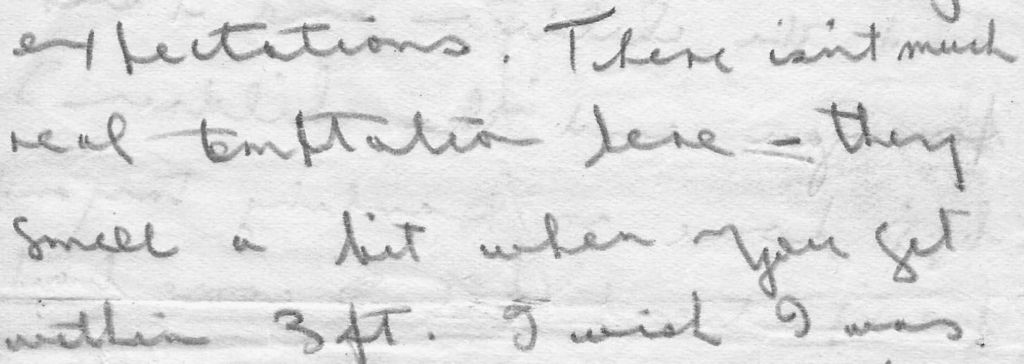 expectations. There isn't much
real temptation here – they
smell a bit when you get
within 3 ft. I wish I was